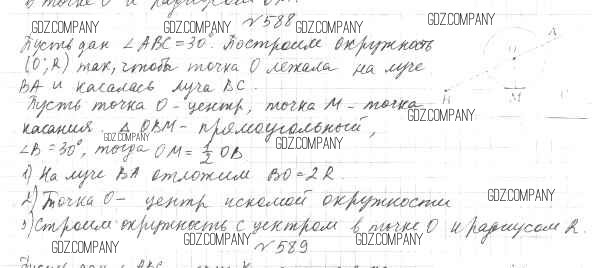 точке O и радиусом
№588
Пусть дан ∠ABC=30°. Построим окружность
(O;R) так, чтобы точка O лежала на луче
BA и касалась луча BC.
Пусть точка O - центр, точка M - точка
касания. △ OBM - прямоугольный,
∠B=30°, тогда OM = 1/2 OB
1) На луче BA отложим BO=2R.
2) Точка O - центр искомой окружности
3) Строим окружность с центром в точке O и радиусом R.
№589
Пусть дан ∠ABC
A
O
B
M
C
GDZ.COMPANY
GDZ.COMPANY
GDZ.COMPANY
GDZ.COMPANY
GDZ.COMPANY
GDZ.COMPANY
GDZ.COMPANY
GDZ.COMPANY
GDZ.COMPANY
GDZ.COMPANY
GDZ.COMPANY